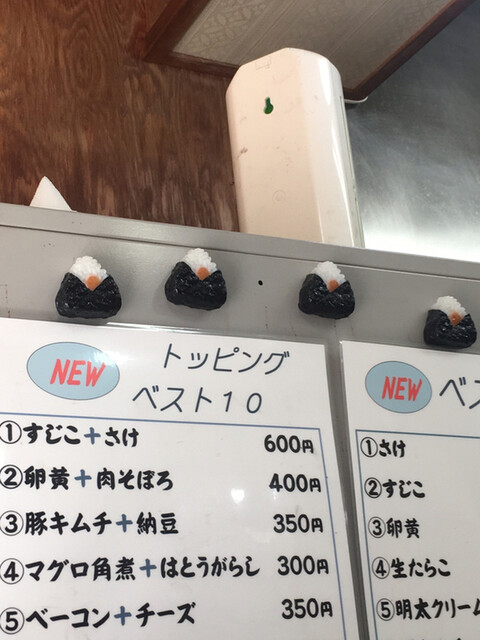 NEW
トッピング
ベスト10
①すじこ+さけ 600円
②卵黄+肉そぼろ 400円
③豚キムチ+納豆 350円
④マグロ角煮+はとうがらし 300円
⑤ベーコン+チーズ 350円
NEW
ベス
①さけ
②すじこ
③卵黄
④生たらこ
⑤明太クリーム